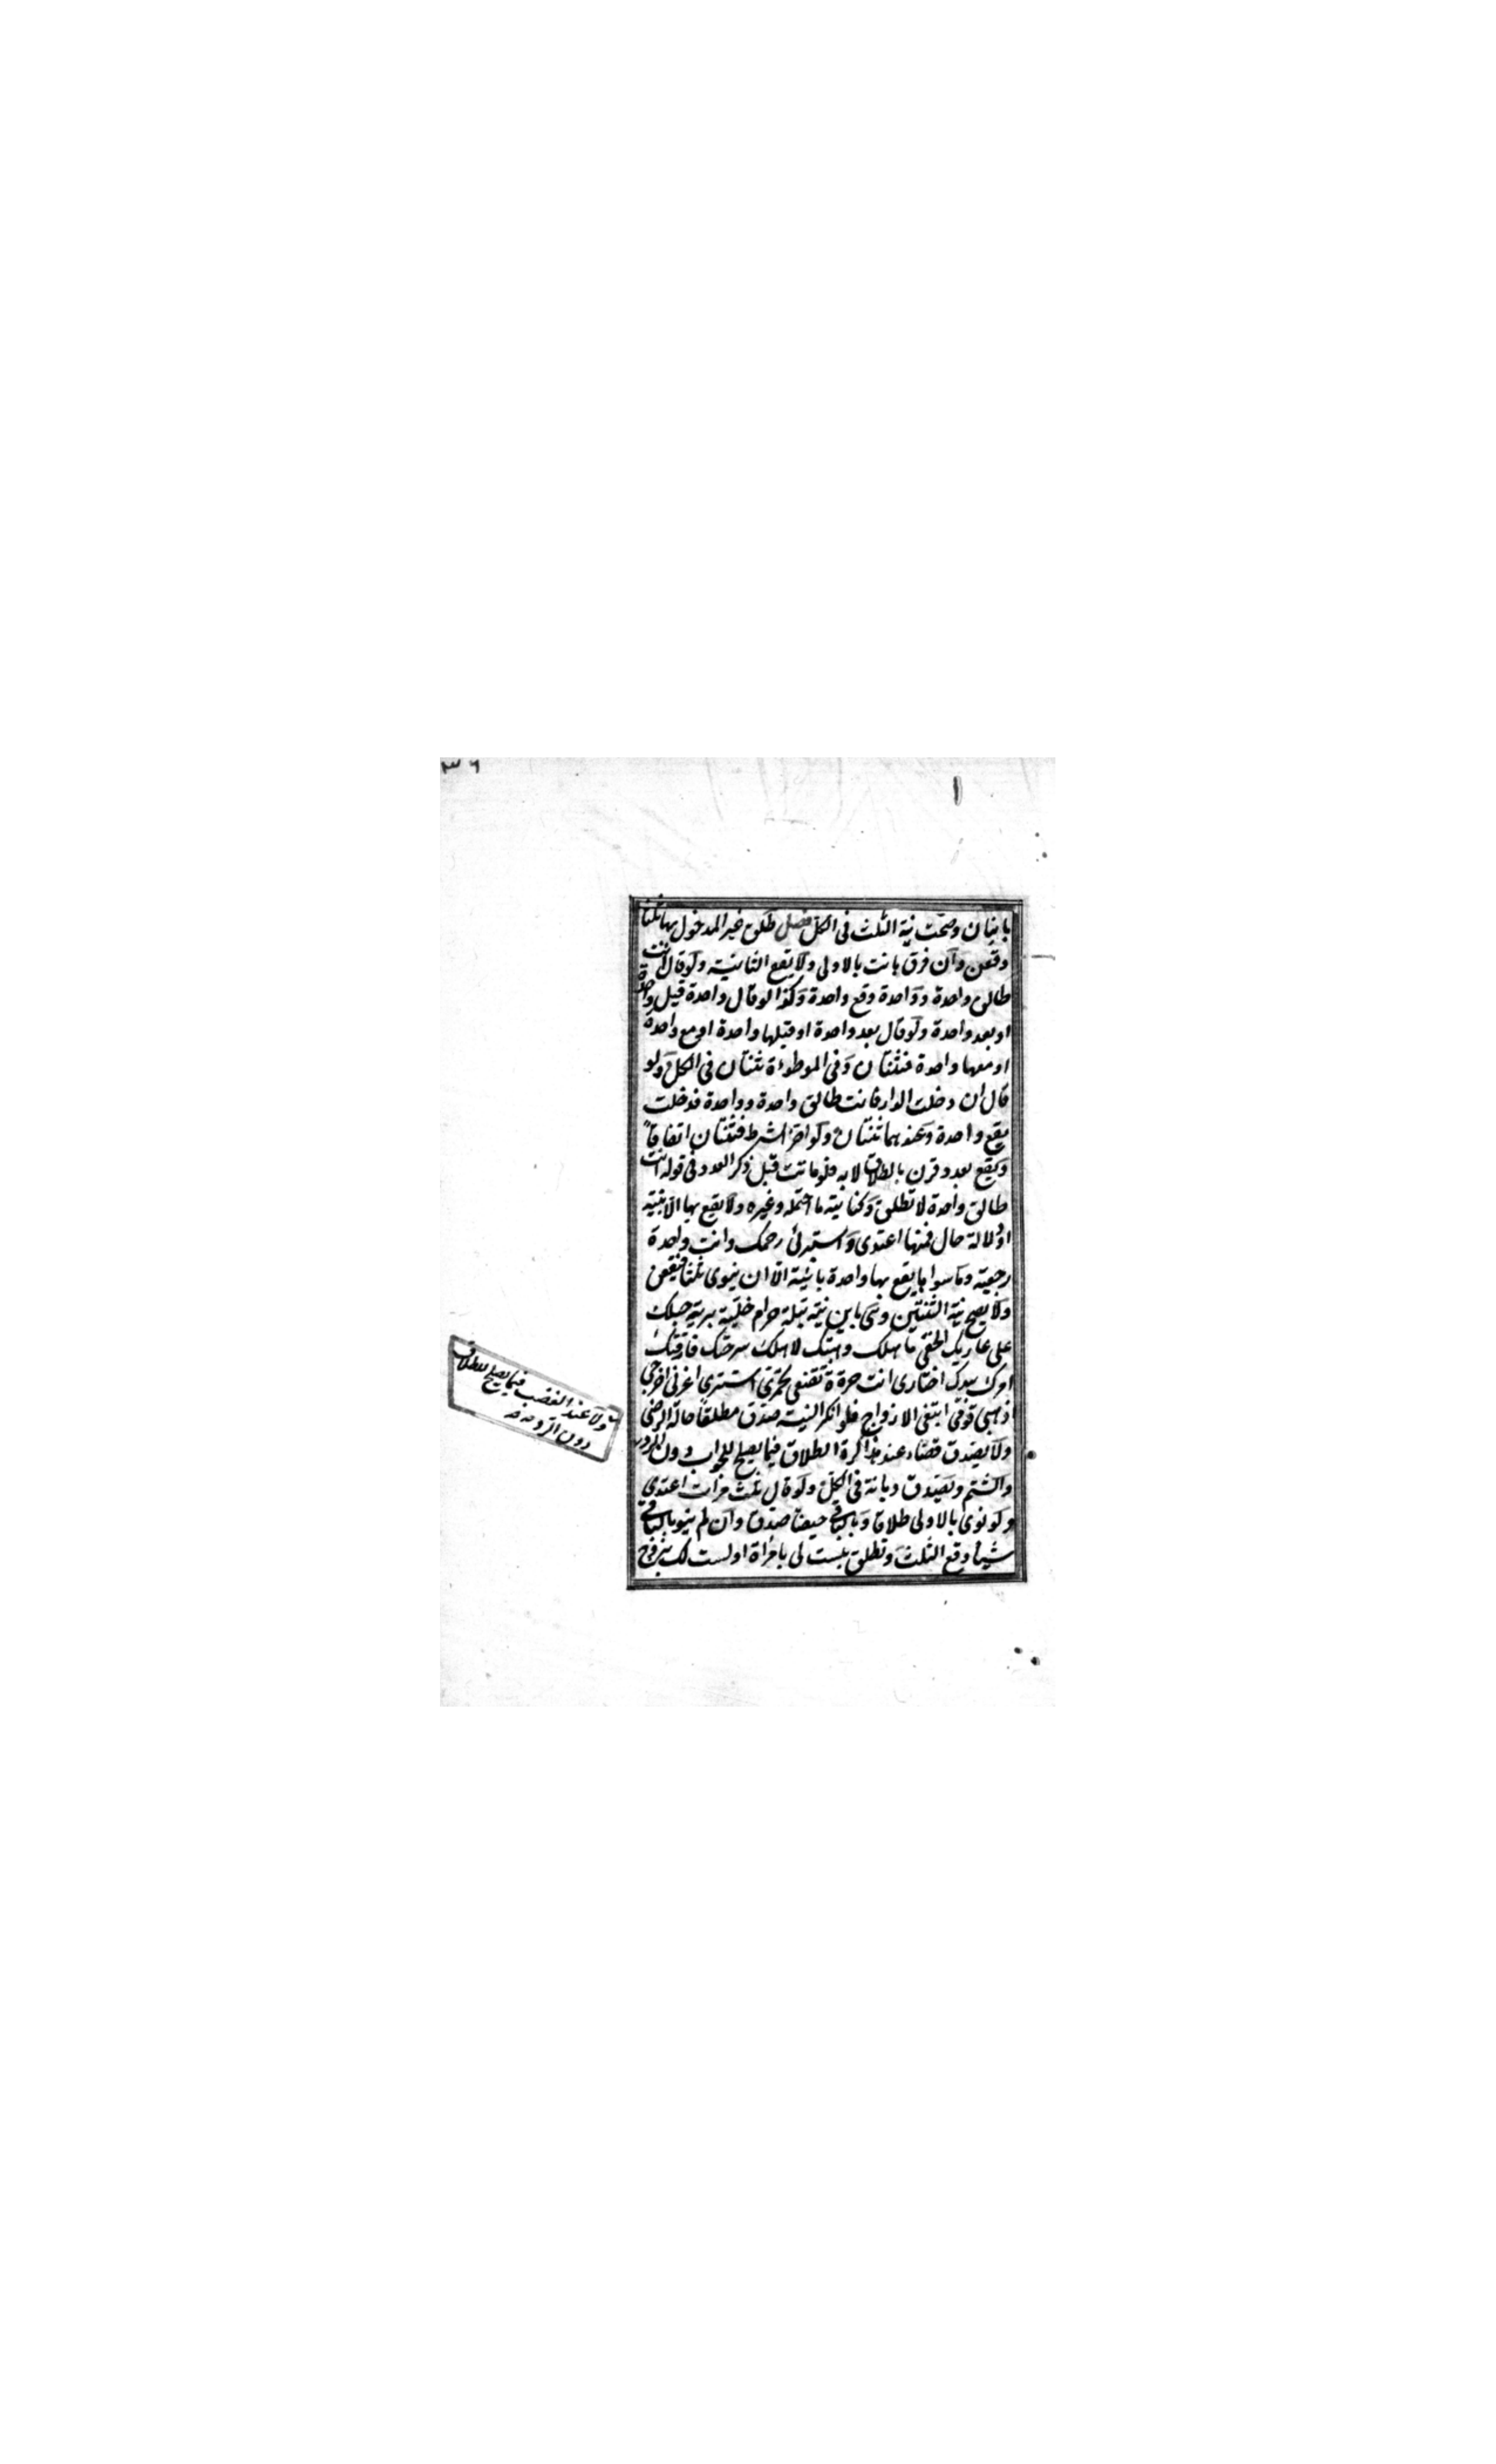 ٣٦
باينان وصحت نية الثلث فى الكل فصل طلق غير المدخول بها ثلثا
وقعن وان فرق بانت بالاولى ولا يقع الثانية ولو قال انت
طالق واحدة وواحدة وقع واحدة وكذا لو قال واحدة قبل واحدة
او بعد واحدة ولو قال بعد واحدة او قبلها واحدة او مع واحدة
او معها واحدة فثنتان وفى الموطوءة ثنتان فى الكل ولو
قال ان دخلت الدار فانت طالق واحدة وواحدة فدخلت
يقع واحدة وعندهما ثنتان ولو اخر الشرط فثنتان اتفاقا
ويقع بعدد قرن بالطلاق لا به فلو ماتت قبل ذكر العدد فى قوله انت
طالق واحدة لا تطلق وكنايته ما احتمله وغيره ولا يقع بها الا بنية
او دلالة حال فمنها اعتدى واستبرئى رحمك وانت واحدة
رجعية وما سواها يقع بها واحدة باينة الا ان ينوى ثلثا فيقعن
ولا يصح نية الثنتين وهى باين بتة بتلة حرام خلية برية حبلك
على غاربك الحقى باهلك وهبتك لاهلك سرحتك فارقتك
امرك بيدك اختارى انت حرة تقنعى تخمرى استترى اغربى اخرجى
اذهبى قومى ابتغى الازواج فلو انكر النية صدق مطلقا حالة الرضى
ولا يصدق قضاء عند مذاكرة الطلاق فيما يصلح للجواب دون الرد
والشتم ويصدق ديانة فى الكل ولو قال ثلث مرات اعتدى
ولو نوى بالاولى طلاقا وبالباقى حيضا صدق وان لم ينو بالباقى
شيئا وقع الثلث وتطلق بلست لى بامرأة او لست لك بزوج
ولا عند الغضب فيما يصلح للطلاق
دون الرد